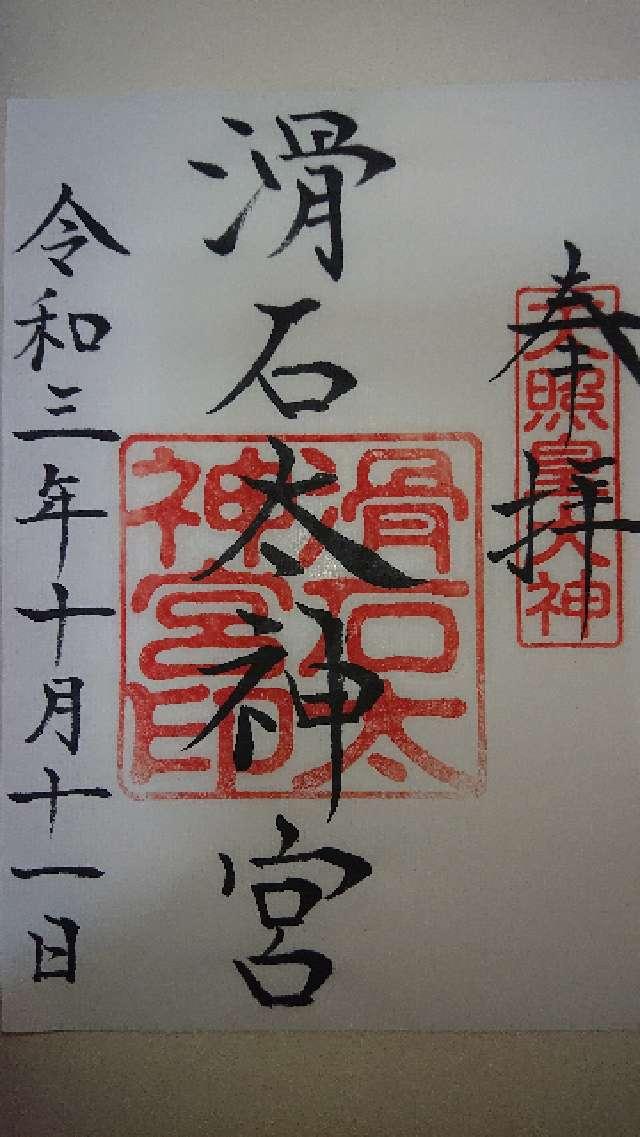 奉拝
天照皇大神
滑石太神宮
滑石太神宮印
令和三年十月十一日